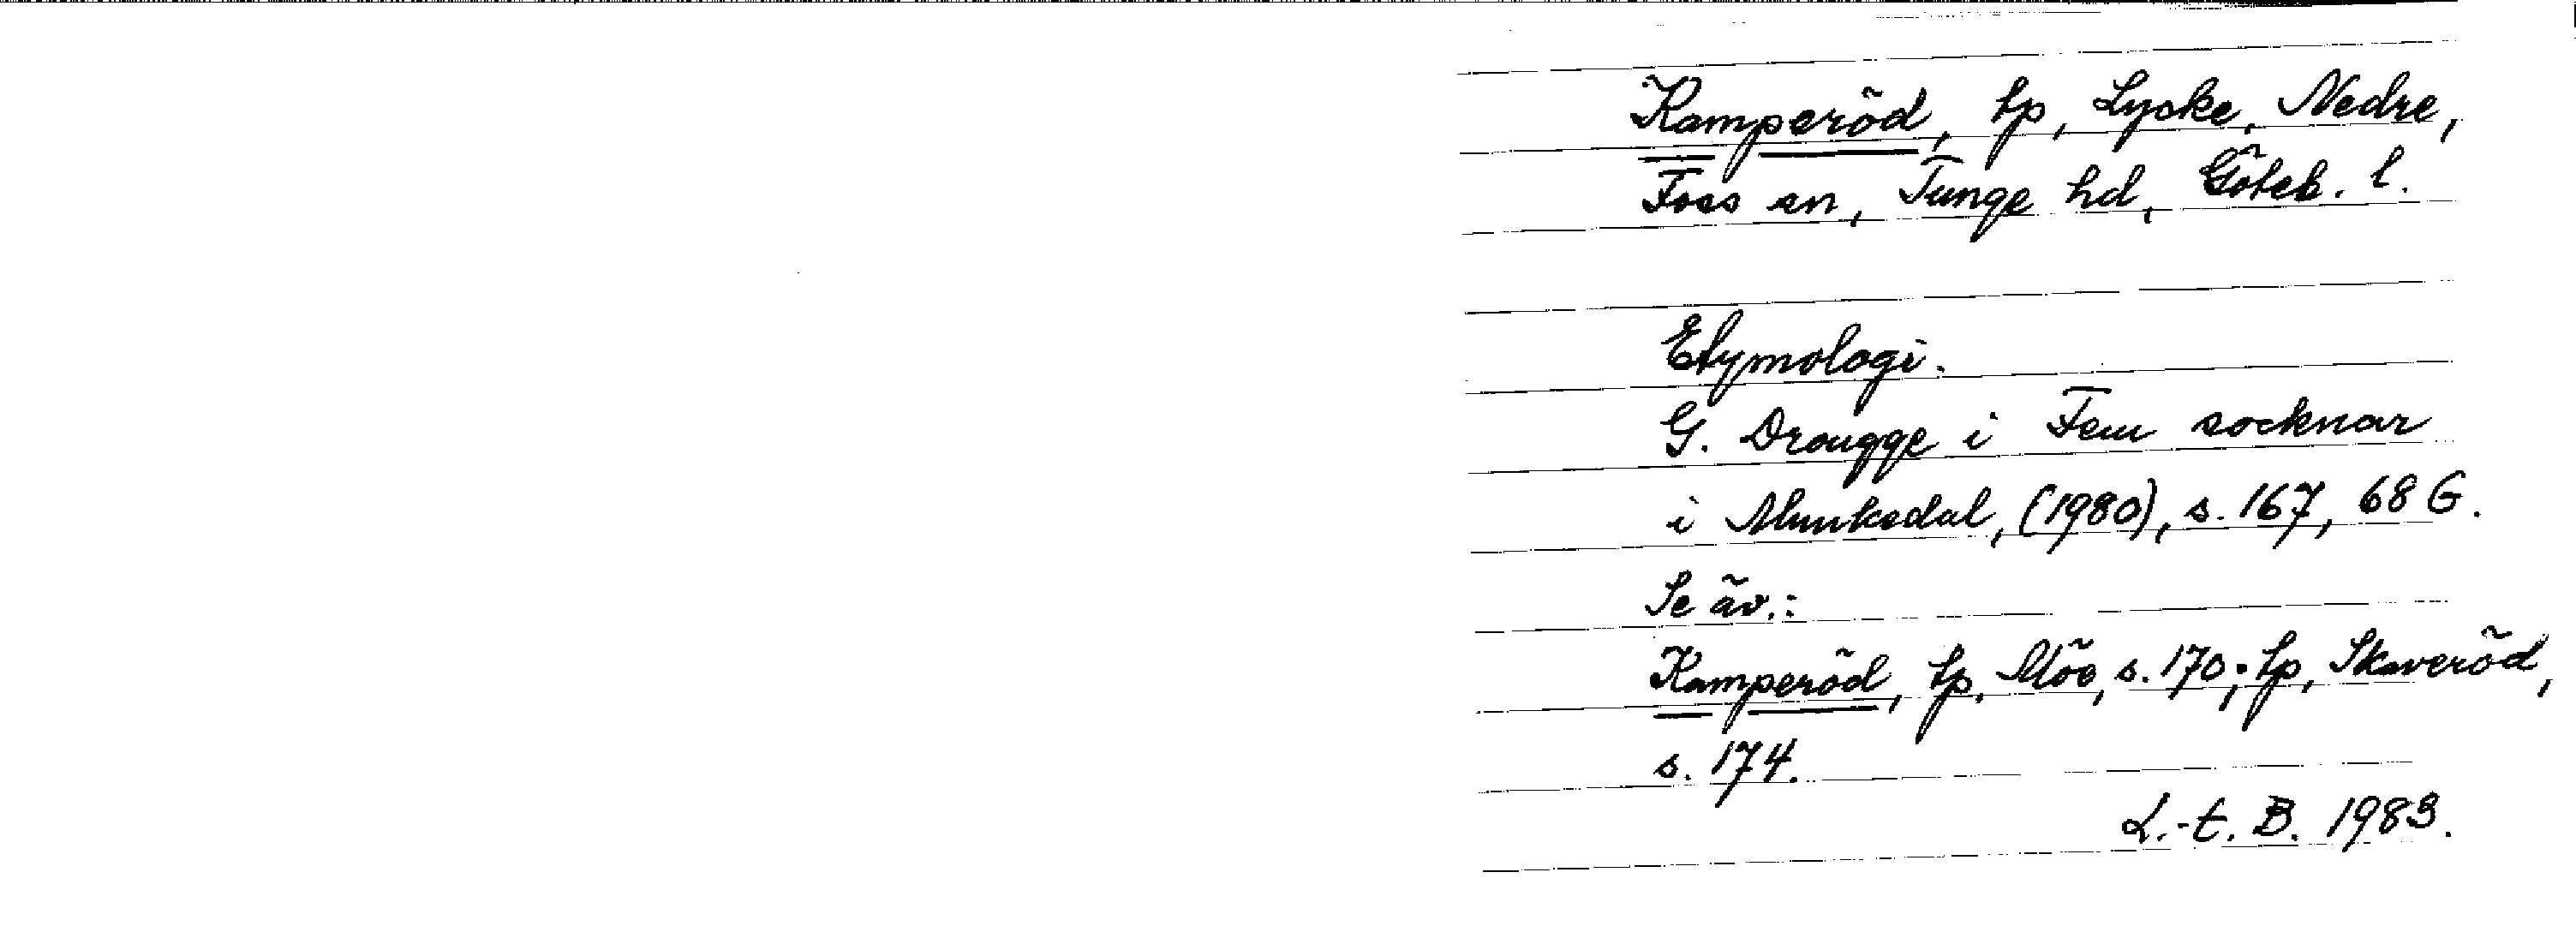 Kamperöd, tp, Lycke, Nedre,
Foss sn, Tunge hd, Göteb. l.
Etymologi.
G. Drougge i Fem socknar
i Munkedal, (1980), s. 167, 68 G.
Se äv.:
Kamperöd, tp, Möe, s. 170; tp, Skaveröd,
s. 174.
L.-E. B. 1983.